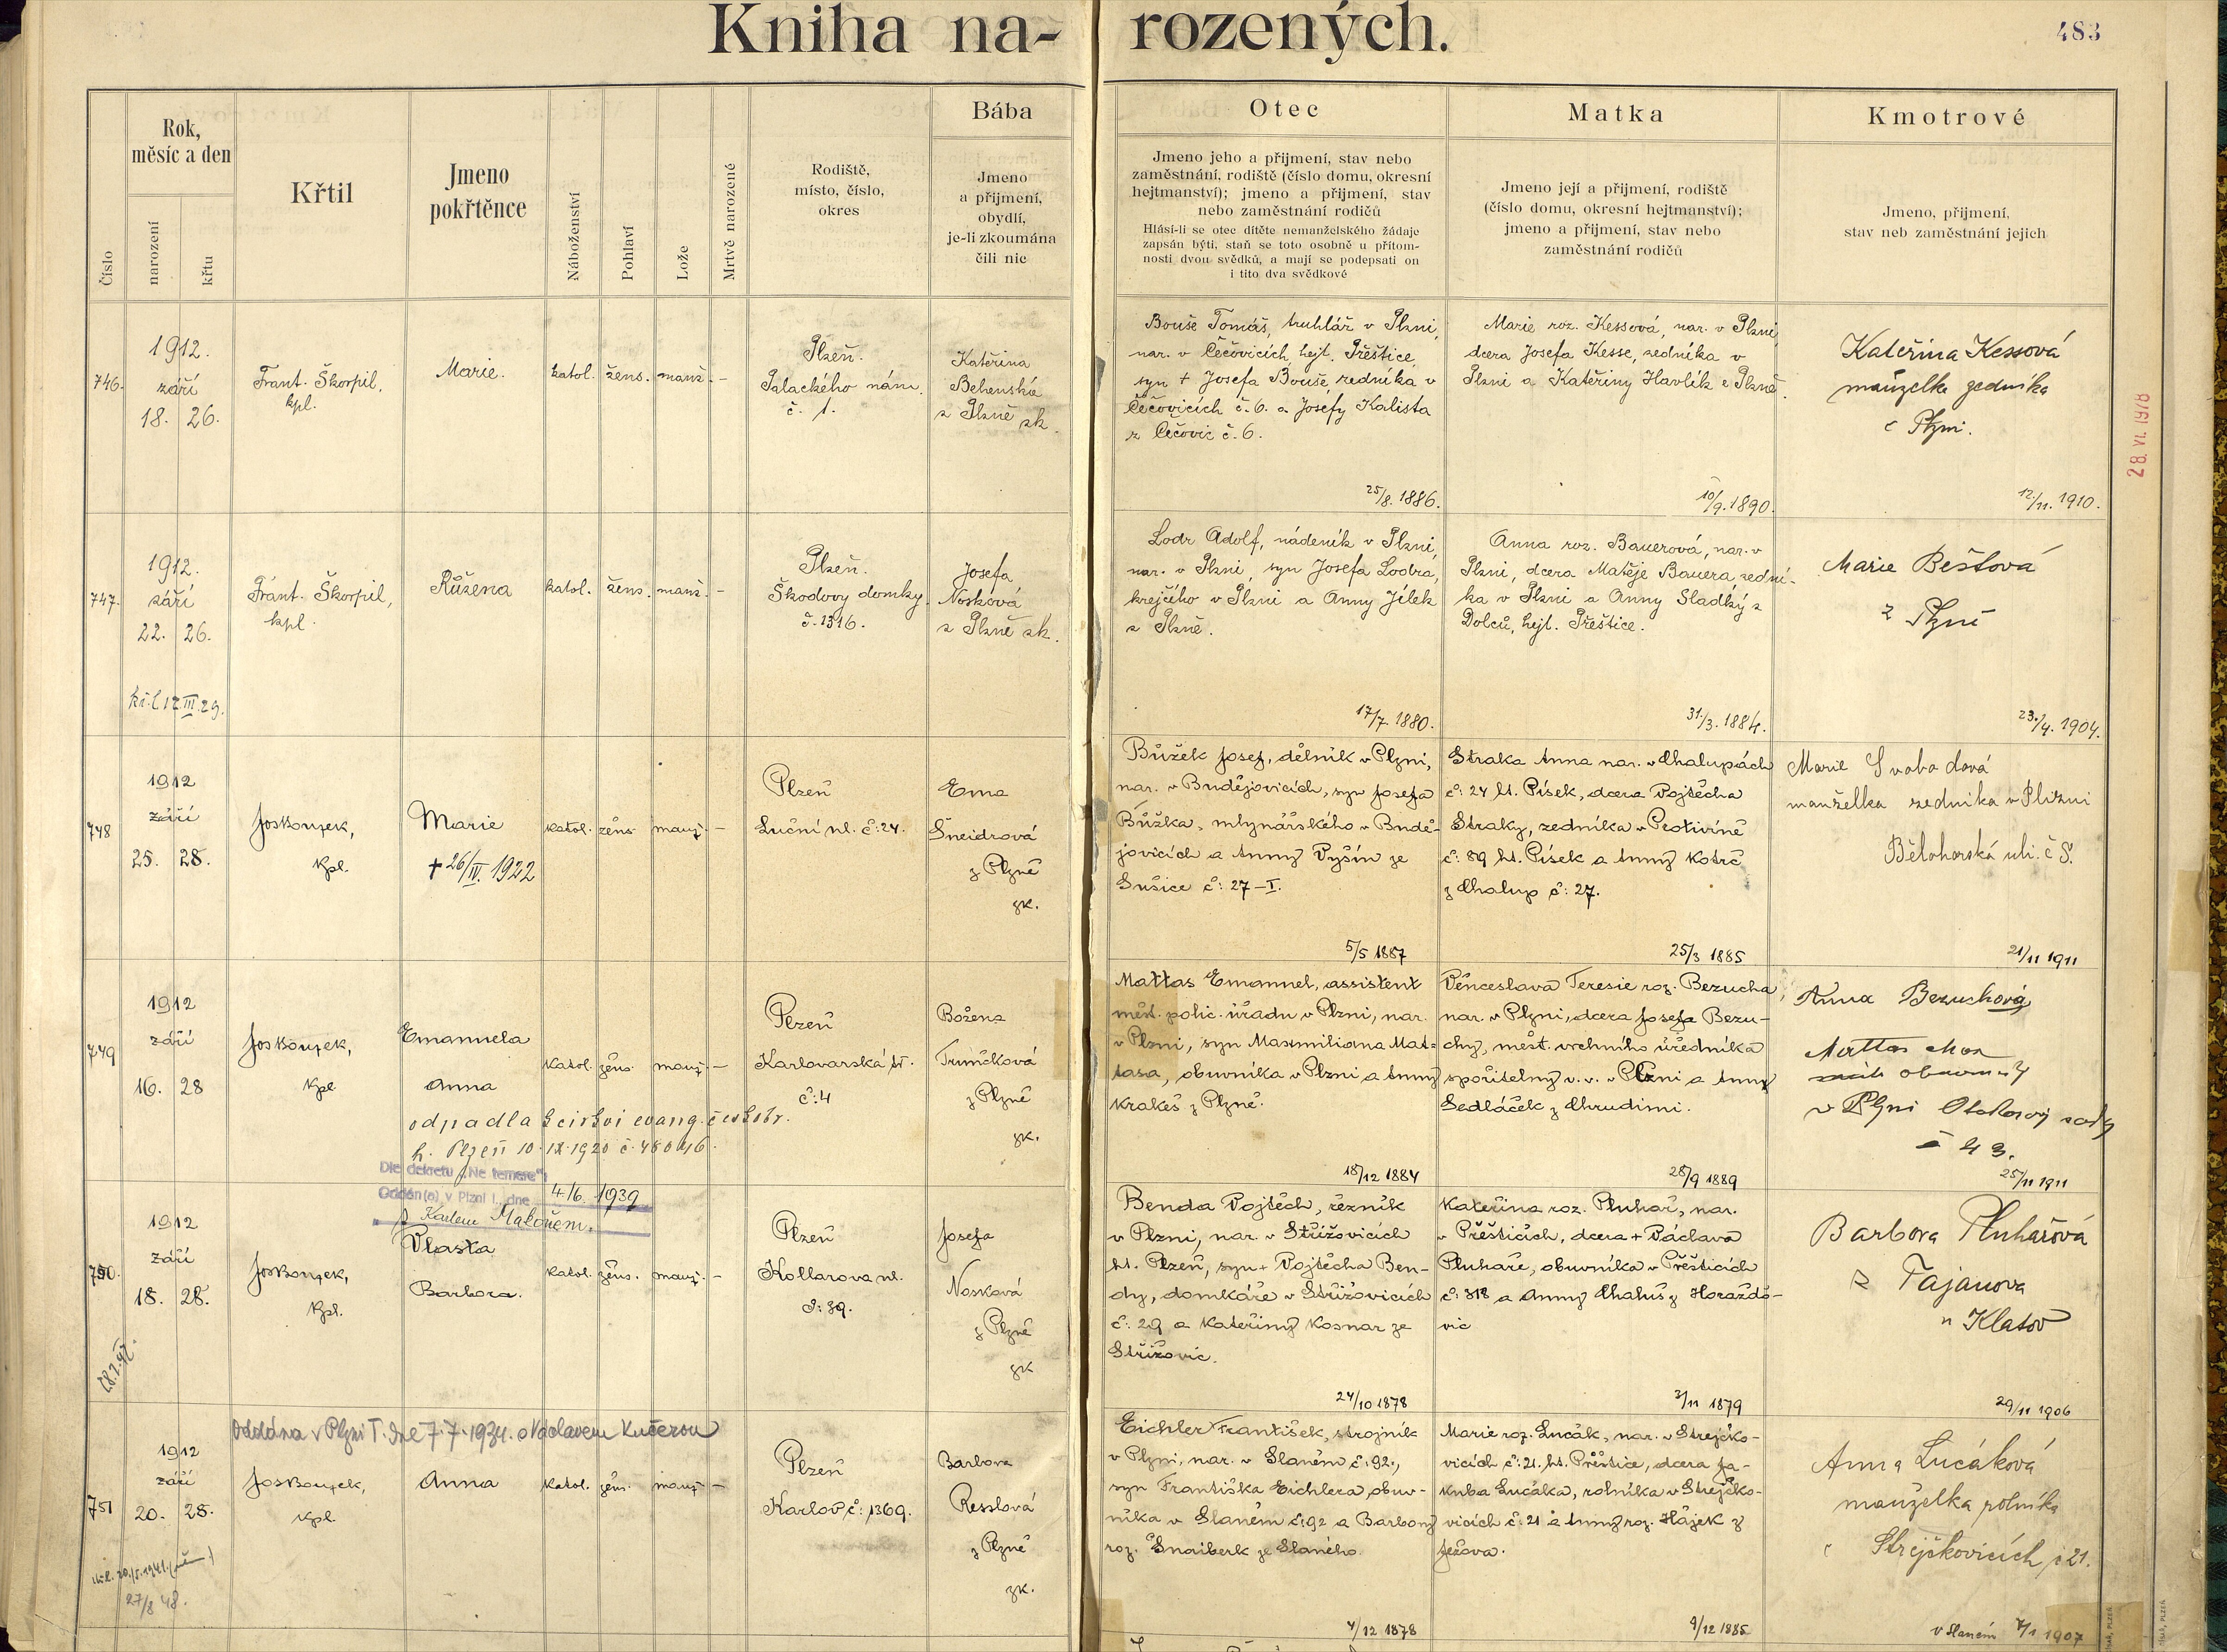 Kniha narozených.
483
Číslo
Rok,
měsíc a den
narození
křtu
Křtil
Jmeno
pokřtěnce
Náboženství
Pohlaví
Lože
Mrtvě narozené
Rodiště,
místo, číslo,
okres
Bába
Jmeno
a přijmení,
obydlí,
je-li zkoumána
čili nic
Otec
Jmeno jeho a přijmení, stav nebo
zaměstnání, rodiště (číslo domu, okresní
hejtmanství); jmeno a přijmení, stav
nebo zaměstnání rodičů
Hlásí-li se otec dítěte nemanželského žádaje
zapsán býti, staň se toto osobně u přítom-
nosti dvou svědků, a mají se podepsati on
i tito dva svědkové
Matka
Jmeno její a přijmení, rodiště
(číslo domu, okresní hejtmanství);
jmeno a přijmení, stav nebo
zaměstnání rodičů
Kmotrové
Jmeno, přijmení,
stav neb zaměstnání jejich
746.
1912.
září
18. 26.
Frant. Škorpil,
kpl.
Marie.
katol. žens. manž. –
Plzeň.
Palackého nám.
č. 1.
Kateřina
Behenská
z Plzně zk.
Bouše Tomáš, truhlář v Plzni,
nar. v Čečovicích, hejt. Přeštice
syn † Josefa Bouše, zedníka v
Čečovicích č. 6. a Josefy Kalista
z Čečovic č. 6.
25/8. 1886.
Marie roz. Kessová, nar. v Plzni,
dcera Josefa Kesse, zedníka v
Plzni a Kateřiny Havlík z Plzně.
10/9. 1890.
Kateřina Kessová
manželka zedníka
v Plzni.
12./11. 1910.
28. VI. 1978
747.
1912.
září
22. 26.
kř. l. 12. III. 29.
Frant. Škorpil,
kpl.
Růžena
katol. žens. manž. –
Plzeň.
Škodovy domky
č. 1316.
Josefa
Nosková
z Plzně zk.
Lodr Adolf, nádeník v Plzni,
nar. v Plzni, syn Josefa Lodra,
krejčího v Plzni a Anny Jílek
z Plzně.
17/7 1880.
Anna roz. Bauerová, nar. v
Plzni, dcera Matěje Bauera, zední-
ka v Plzni a Anny Sladký z
Dolců, hejt. Přeštice.
31./3. 1884.
Marie Beštová
z Plzně
23./4. 1904.
748
1912
září
25. 28.
Jos Bouzek,
kpl.
Marie
† 26/IV. 1922
katol. žens. manž. –
Plzeň
Luční ul. č: 24.
Ema
Šneidrová
z Plzně
zk.
Bůžek Josef, dělník v Plzni,
nar. v Budějovicích, syn Josefa
Bůžka, mlynářského v Budě-
jovicích a Anny Vyšín ze
Sušice č: 27–I.
5/5 1887
Straka Anna nar. v Chalupách
č: 24 ht. Písek, dcera Vojtěcha
Straky, zedníka v Protivíně
č: 89 ht. Písek a Anny Kotrč
z Chalup č: 27.
25/3 1885
Marie Svobodová
manželka zedníka v Plizni
Bělohorská uli. č 8.
21/11 1911
749
1912
září
16. 28
Jos Bouzek,
kpl
Emanuela
Anna
katol. žens. manž. –
Plzeň
Karlovarská tř.
č: 4
Božena
Trunčková
z Plzně
zk.
odpadla k církvi evang. českobr.
h. Plzeň 10. IX. 1920 č. 48046.
Dle dekretu „Ne temere“
Oddán(a) v Plzni I., dne 4./6. 1939
s Karlem Maloušem.
Mattas Emanuel, assistent
měst. polic. úřadu v Plzni, nar.
v Plzni, syn Maxmiliana Mat-
tasa, obuvníka v Plzni a Anny
Krakeš z Plzně.
18/12 1884
Věnceslava Teresie roz. Bezucha,
nar. v Plzni, dcera Josefa Bezu-
chy, měst. vrchního úředníka
spořitelny v. v. v Plzni a Anny
Sedláček z Chrudimi.
28/9 1889
Anna Bezuchová
Mattas Max
obuvník
v Plzni Otakarovy sady
č 43.
25/11 1911
750.
1912
září
18. 28.
28. 2. 42.
Jos Bouzek,
kpl.
Vlasta
Barbora.
katol. žens. manž. –
Plzeň
Kollarova ul.
č: 39.
Josefa
Nosková
z Plzně
zk
Benda Vojtěch, řezník
v Plzni, nar. v Střížovicích
ht. Plzeň, syn † Vojtěcha Ben-
dy, domkáře v Střížovicích
č: 29 a Kateřiny Kosnar ze
Střížovic.
24/10 1878
Kateřina roz. Pluhař, nar.
v Přešticích, dcera † Václava
Pluhaře, obuvníka v Přešticích
č: 318 a Anny Chaluš z Horažďo-
vic
3/11 1879
Barbora Pluhařová
z Tajanova
u Klatov
29/11 1906
751
1912
září
20. 28.
20./5. 1941.
27/8 48.
Oddána v Plzni I. dne 7. 7. 1934. s Václavem Kučerou
Jos Bouzek,
kpl.
Anna
katol. žens. manž. –
Plzeň
Karlov č: 1369.
Barbora
Resslová
z Plzně
zk.
Eichler František, strojník
v Plzni, nar. v Slaném č: 92.,
syn Františka Eichlera, obuv-
níka v Slaném č: 92 a Barbory
roz. Šnaiberk ze Slaného.
4/12 1878
Marie roz. Lucák, nar. v Strejčko-
vicích č: 21. ht. Přeštice, dcera Ja-
kuba Lucáka, rolníka v Strejčko-
vicích č: 21 a Anny roz. Hájek z
Ježova.
9/12 1885
Anna Lucáková
manželka rolníka
v Strejčkovicích č 21.
v Slaném 7/1 1907